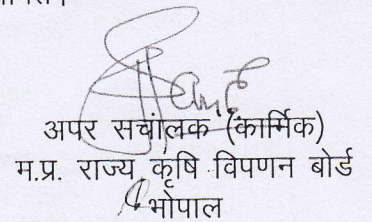 अपर सचांलक (कार्मिक)
म.प्र. राज्य कृषि विपणन बोर्ड
भोपाल